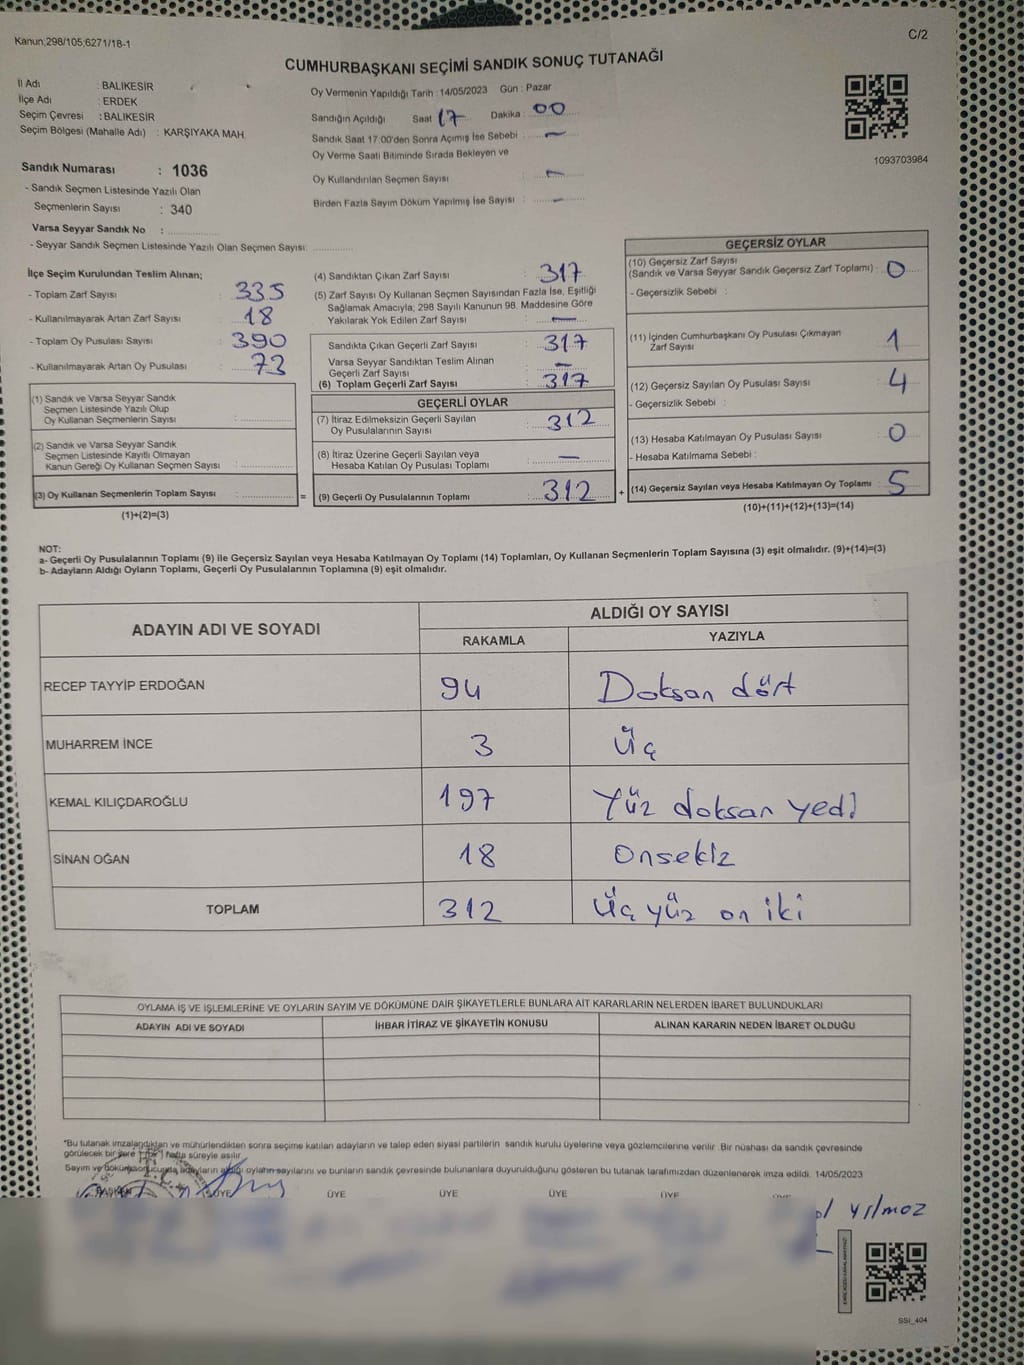 Kanun;298/105;6271/18-1
C/2
CUMHURBAŞKANI SEÇİMİ SANDIK SONUÇ TUTANAĞI
İl Adı : BALIKESİR
İlçe Adı : ERDEK
Seçim Çevresi : BALIKESİR
Seçim Bölgesi (Mahalle Adı) : KARŞIYAKA MAH.
Oy Vermenin Yapıldığı Tarih : 14/05/2023 Gün : Pazar
Sandığın Açıldığı Saat 17 Dakika : 00
Sandık Saat 17.00'den Sonra Açımış İse Sebebi : –
Oy Verme Saati Bitiminde Sırada Bekleyen ve
Oy Kullandırılan Seçmen Sayısı : –
Birden Fazla Sayım Döküm Yapılmış İse Sayısı : –
1093703984
Sandık Numarası : 1036
- Sandık Seçmen Listesinde Yazılı Olan
Seçmenlerin Sayısı : 340
Varsa Seyyar Sandık No :
- Seyyar Sandık Seçmen Listesinde Yazılı Olan Seçmen Sayısı:
İlçe Seçim Kurulundan Teslim Alınan;
- Toplam Zarf Sayısı : 335
- Kullanılmayarak Artan Zarf Sayısı : 18
- Toplam Oy Pusulası Sayısı : 390
- Kullanılmayarak Artan Oy Pusulası : 73
(1) Sandık ve Varsa Seyyar Sandık
Seçmen Listesinde Yazılı Olup
Oy Kullanan Seçmenlerin Sayısı :
(2) Sandık ve Varsa Seyyar Sandık
Seçmen Listesinde Kayıtlı Olmayan
Kanun Gereği Oy Kullanan Seçmen Sayısı :
(3) Oy Kullanan Seçmenlerin Toplam Sayısı :
(1)+(2)=(3)
(4) Sandıktan Çıkan Zarf Sayısı : 317
(5) Zarf Sayısı Oy Kullanan Seçmen Sayısından Fazla İse, Eşitliği
Sağlamak Amacıyla; 298 Sayılı Kanunun 98. Maddesine Göre
Yakılarak Yok Edilen Zarf Sayısı : –
Sandıkta Çıkan Geçerli Zarf Sayısı : 317
Varsa Seyyar Sandıktan Teslim Alınan
Geçerli Zarf Sayısı : –
(6) Toplam Geçerli Zarf Sayısı : 317
GEÇERLİ OYLAR
(7) İtiraz Edilmeksizin Geçerli Sayılan
Oy Pusulalarının Sayısı : 312
(8) İtiraz Üzerine Geçerli Sayılan veya
Hesaba Katılan Oy Pusulası Toplamı : –
= (9) Geçerli Oy Pusulalarının Toplamı : 312 +
GEÇERSİZ OYLAR
(10) Geçersiz Zarf Sayısı
(Sandık ve Varsa Seyyar Sandık Geçersiz Zarf Toplamı) : 0
- Geçersizlik Sebebi :
(11) İçinden Cumhurbaşkanı Oy Pusulası Çıkmayan
Zarf Sayısı : 1
(12) Geçersiz Sayılan Oy Pusulası Sayısı : 4
- Geçersizlik Sebebi :
(13) Hesaba Katılmayan Oy Pusulası Sayısı : 0
- Hesaba Katılmama Sebebi :
(14) Geçersiz Sayılan veya Hesaba Katılmayan Oy Toplamı : 5
(10)+(11)+(12)+(13)=(14)
NOT:
a- Geçerli Oy Pusulalarının Toplamı (9) ile Geçersiz Sayılan veya Hesaba Katılmayan Oy Toplamı (14) Toplamları, Oy Kullanan Seçmenlerin Toplam Sayısına (3) eşit olmalıdır. (9)+(14)=(3)
b- Adayların Aldığı Oyların Toplamı, Geçerli Oy Pusulalarının Toplamına (9) eşit olmalıdır.
ADAYIN ADI VE SOYADI
ALDIĞI OY SAYISI
RAKAMLA YAZIYLA
RECEP TAYYİP ERDOĞAN 94 Doksan dört
MUHARREM İNCE 3 Üç
KEMAL KILIÇDAROĞLU 197 Yüz doksan yedi
SİNAN OĞAN 18 Onsekiz
TOPLAM 312 Üç yüz on iki
OYLAMA İŞ VE İŞLEMLERİNE VE OYLARIN SAYIM VE DÖKÜMÜNE DAİR ŞİKAYETLERLE BUNLARA AİT KARARLARIN NELERDEN İBARET BULUNDUKLARI
ADAYIN ADI VE SOYADI İHBAR İTİRAZ VE ŞİKAYETİN KONUSU ALINAN KARARIN NEDEN İBARET OLDUĞU
*Bu tutanak imzalandıktan ve mühürlendikten sonra seçime katılan adayların ve talep eden siyasi partilerin sandık kurulu üyelerine veya gözlemcilerine verilir. Bir nüshası da sandık çevresinde
görülecek bir yere bir hafta süreyle asılır.
Sayım ve döküm sonucunda adayların aldığı oyların sayılarını ve bunların sandık çevresinde bulunanlara duyurulduğunu gösteren bu tutanak tarafımızdan düzenlenerek imza edildi. 14/05/2023
BAŞKAN ÜYE ÜYE ÜYE ÜYE ÜYE
Yılmaz
SSİ_404